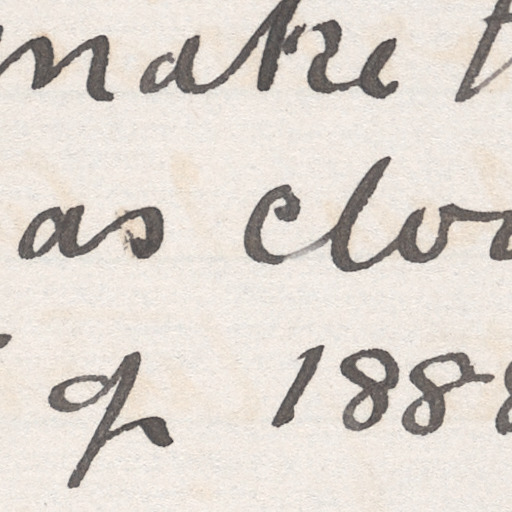 make
as clo
of 188